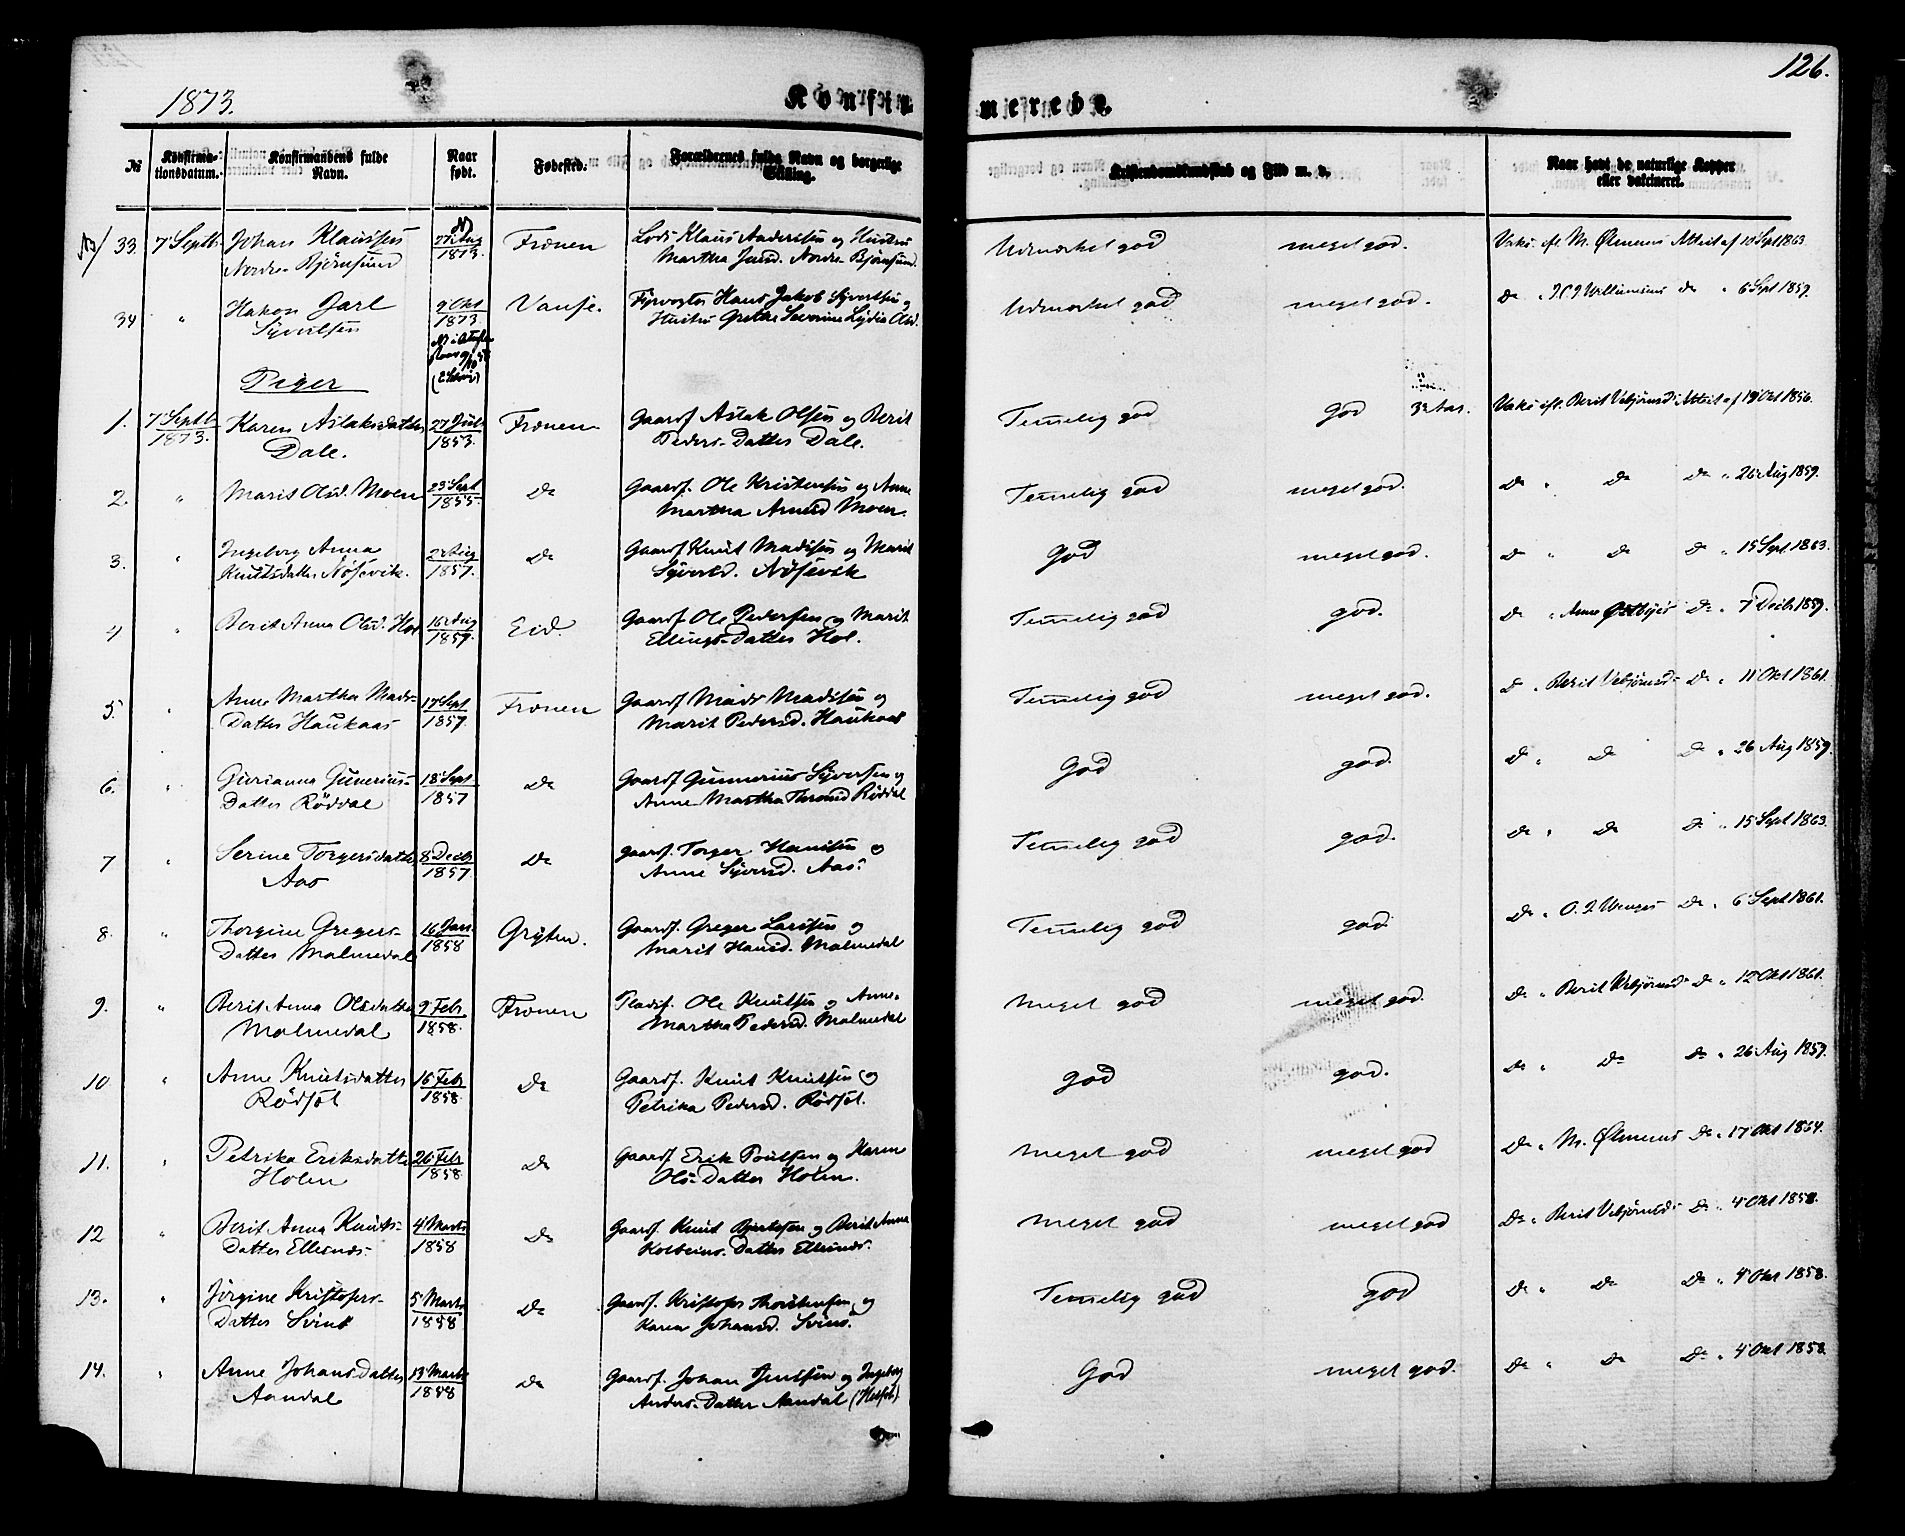 1873.
Konfir
merede.
126.
No
Konfirma-
tionsdatum.
Konfirmandens fulde
Navn.
Naar
født.
Fødested.
Forældrenes fulde Navn og borgerlige
Stilling.
Kristendomskundskab og Flid m. v.
Naar havt de naturlige Kopper
eller vaccineret.
33. 7 Septb. Johan Klaussen 27 Aug Frænen Lods Klaus Anderssen og Hustru Udmærket god meget god. Vaks. efl. M. Ølmenes Attest af 10 Sept 1863.
Nordre Bjørnsund 1873. Martha Jensd. Nordre Bjørnsund.
34 " Hakon Jarl 9 Okt Vanse. Fyrvogter Hans Jakob Syvertsen og Udmærket god meget god. Do " Do " 6 Sept 1859.
Syvertsen 1873 Hustru Grethe Severine Lydia Olsd.
Piger
1. 7 Septb Karen Aslaksdatter 27 Juli Frænen Gaardf Aslak Olsen og Berit Temmelig god God Vaks efl. Berit Vebjørnsds Attest af 19 Okt 1856.
1873. Dale. 1853. Peders-Datter Dale.
2. " Marit Olsd. Moen 23 Sept Do Gaardf. Ole Kristensen og Anne Temmelig god meget god. Do " Do Do " 26 Aug 1859.
1855. Martha Arnesd Moen.
3. " Ingeborg Anna 2 Aug Do Gaardf Knut Madssen og Marit God meget god. Do " Do Do " 15 Sept 1863.
Knutsdatter Nøsevik. 1857. Syversd. Nøsevik
4 " Berit Anna Olsd. Hol 16 Aug Eid. Gaardf Ole Pedersen og Marit Temmelig god god. Do " Anne Do " 7 Decb. 1859.
1857. Ellings-Datter Hol.
5. " Anne Martha Mads- 17 Sept Frænen Gaardf Mads Madssen og Temmelig god meget god. Do " Berit Vebjørnsds Do " 11 Okt 1861.
Datter Haukaas 1857. Marit Pedersd. Haukaas
6. " Gurianna Gunerius- 18 Sept Do Gaardf Gunnerius Syversen og God god. Do " Do Do " 26 Aug 1859.
Datter Röddal 1857 Anne Martha Thronsd Röddal
7 " Serine Torgersdatter 8 Decb Do Gaardf. Torger Hanssen og Temmelig god god. Do " Do Do " 15 Sept 1863.
Aas 1857 Anne Syversd. Aas.
8. " Thorgine Gregers- 16 Jan. Gryten. Gaardf. Greger Larssen og Temmelig god god. Do " O. J. Wenges Do " 6 Sept 1861.
Datter Malmedal 1858 Marit Hansd. Malmedal
9. " Berit Anna Olsdatter 9 Feb Frænen Pladsf. Ole Knutsen og Anne- Meget god meget god. Do " Berit Vebjørnsds Do " 12 Okt 1861.
Malmedal 1858. Martha Pedersd. Malmedal
10 " Anne Knutsdatter 16 Feb Do Gaardf. Knut Knutsen og god god. Do " Do Do " 26 Aug 1859.
Rödsöl 1858. Petrika Pedersd. Rödsöl.
11. " Petrika Eriksdatter 26 Feb Do Gaardf Erik Poulsen og Karen Meget god meget god Do " M. Ølmenes Do " 17 Okt 1864.
Holen 1858 Ols-Datter Holen.
12 " Berit Anna Knuts- 4 Marts Do Gaardf Knut og Berit Anna Meget god meget god Do " Berit Vebjørnsds Do " 4 Okt 1858.
Datter Ellesnæs 1858 Kolbeins-Datter Ellesnæs.
13. " Jörgine Kristofers- 5 Marts Do Gaardf. Kristofer Thorstensen og Temmelig god god Do " Do Do " 4 Okt 1858.
Datter Svins 1858 Karen Johansd. Svins.
14. " Anne Johans-Datter 13 Marts Do Gaardf. Johan Jenssen og Ingeborg God meget god. Do " Do Do " 4 Okt 1858.
Aandal 1858 Anders-Datter Aandal